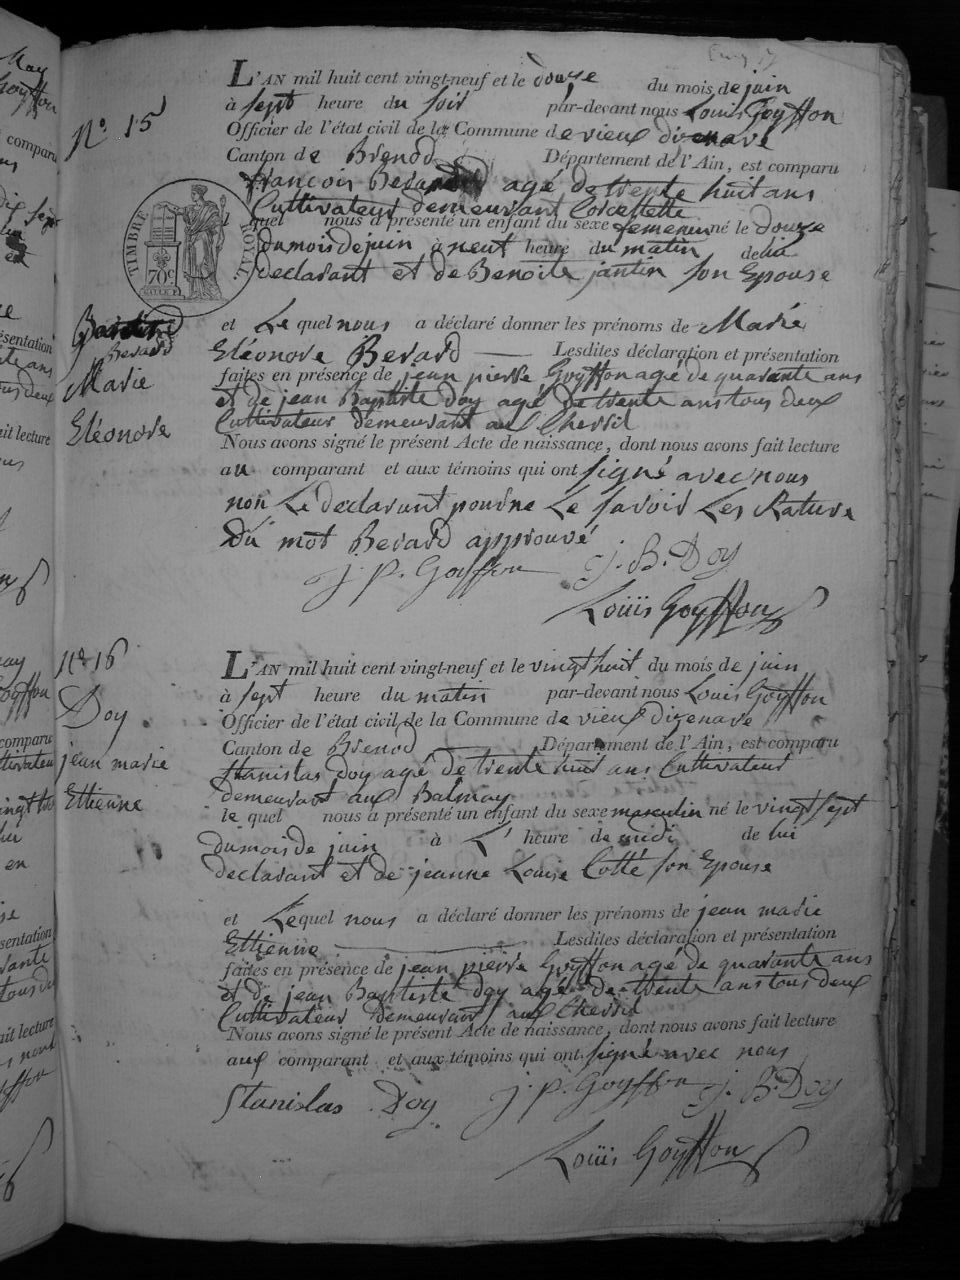 N.° 15
L'AN mil huit cent vingt-neuf et le douze du mois de juin
à sept heure du soir par-devant nous Louis Goyffon
Officier de l'état civil de la Commune de vieux dizenave
Canton de Brenod Département de l'Ain, est comparu
francois Berard agé de trente huit ans
Cultivateur demeurant Corcelette
quel nous a présenté un enfant du sexe femenin né le douze
du mois de juin à neuf heure du matin de lui
declarant et de Benoite jantin son Epouse
TIMBRE ROYAL
70c
et Le quel nous a déclaré donner les prénoms de Marie
Berard
Marie
Eléonore
Eléonore Berard Lesdites déclaration et présentation
faites en présence de jean pierre Goyffon agé de quarante ans
et de jean Baptiste doy agé de trente ans tous deux
Cultivateur demeurant au Chevril
Nous avons signé le présent Acte de naissance, dont nous avons fait lecture
au comparant et aux témoins qui ont signé avec nous
non Le declarant pour ne Le savoir Les Rature
Du mot Berard approuvé
J. P. Goyffon J. B. Doy
Louis Goyffon
N° 16
Doy
jean marie
Ettienne
L'AN mil huit cent vingt-neuf et le vingt huit du mois de juin
à sept heure du matin par-devant nous Louis Goyffon
Officier de l'état civil de la Commune de vieux dizenave
Canton de Brenod Département de l'Ain, est comparu
Stanislas doy agé de trente huit ans Cultivateur
demeurant aux Balmay
le quel nous a présenté un enfant du sexe masculin né le vingt sept
du mois de juin à L' heure de midi de lui
declarant et de jeanne Louise Cotte son Epouse
et Le quel nous a déclaré donner les prénoms de jean marie
Ettienne Lesdites déclaration et présentation
faites en présence de jean pierre Goyffon agé de quarante ans
et de jean Baptiste doy agé de trente ans tous deux
Cultivateur demeurant au Chevril
Nous avons signé le présent Acte de naissance, dont nous avons fait lecture
aux comparant et aux témoins qui ont signé avec nous
Stanislas Doy J. P. Goyffon J. B. Doy
Louis Goyffon